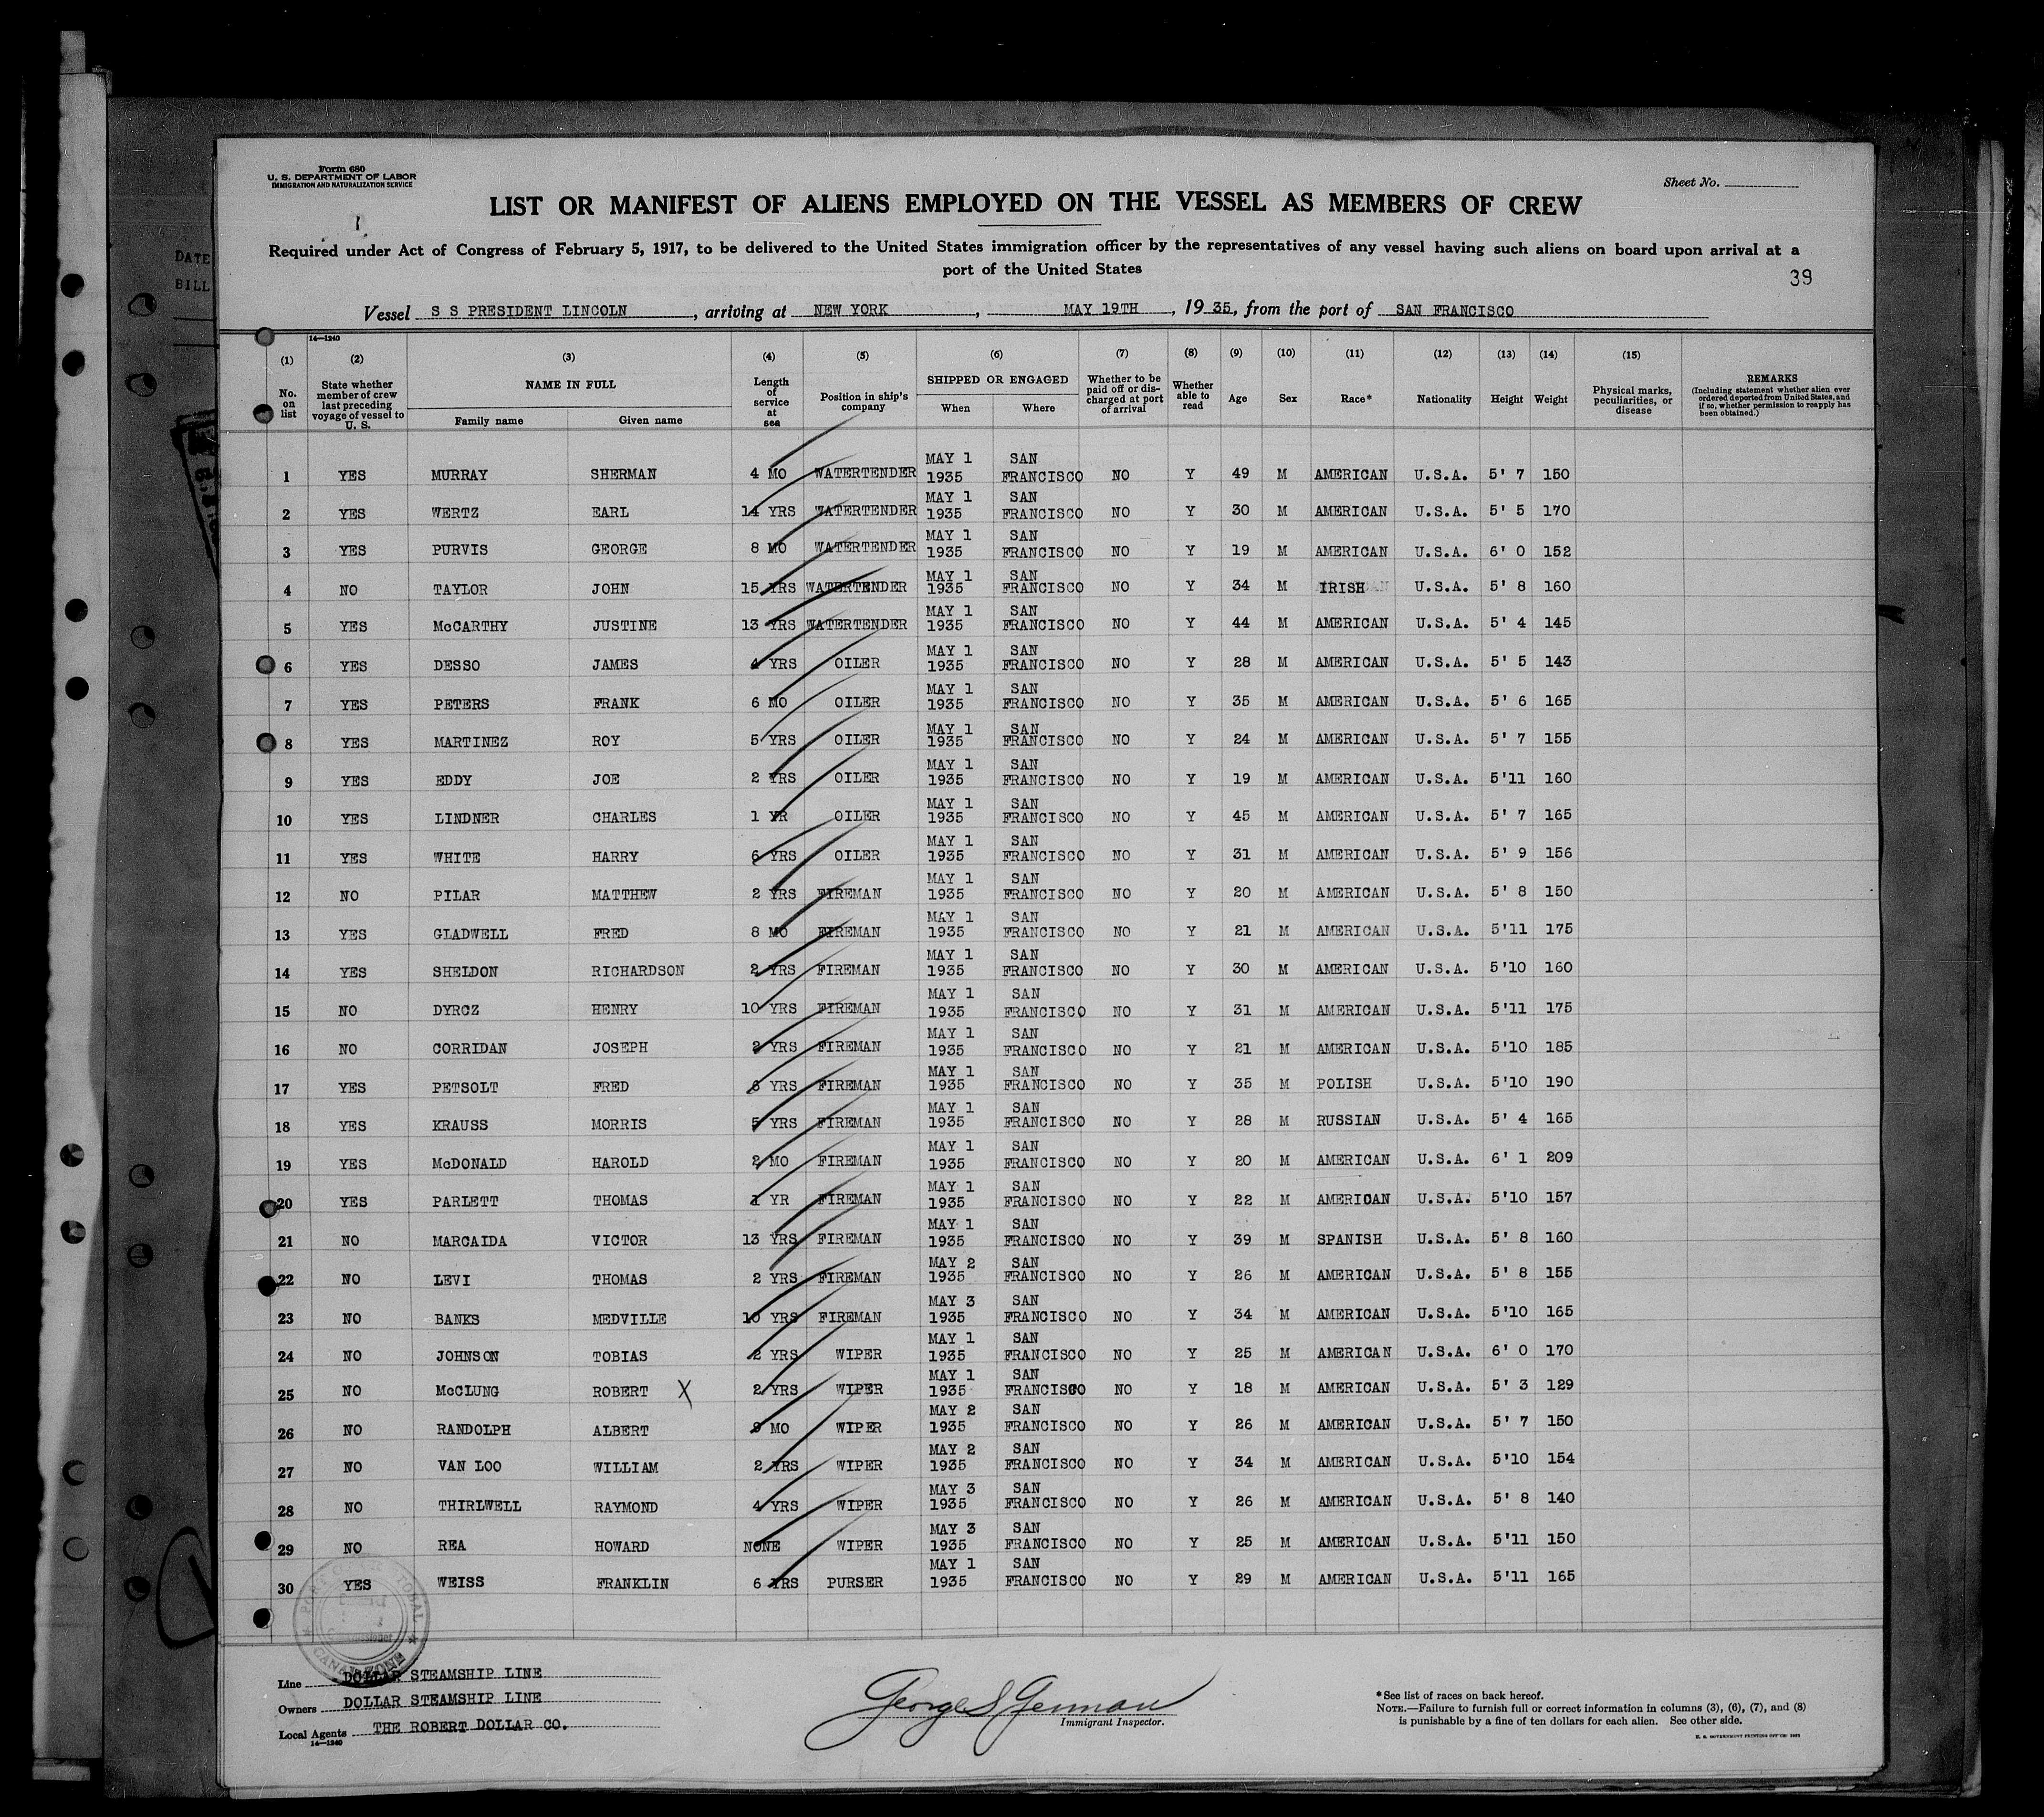 Form 680
U. S. DEPARTMENT OF LABOR
IMMIGRATION AND NATURALIZATION SERVICE
Sheet No.
LIST OR MANIFEST OF ALIENS EMPLOYED ON THE VESSEL AS MEMBERS OF CREW
Required under Act of Congress of February 5, 1917, to be delivered to the United States immigration officer by the representatives of any vessel having such aliens on board upon arrival at a
port of the United States
39
DATE
BILL
Vessel S S PRESIDENT LINCOLN, arriving at NEW YORK, MAY 19TH, 1935, from the port of SAN FRANCISCO
14—1240
(1) (2) (3) (4) (5) (6) (7) (8) (9) (10) (11) (12) (13) (14) (15)
No. on list State whether member of crew last preceding voyage of vessel to U. S. NAME IN FULL Family name Given name Length of service at sea Position in ship's company SHIPPED OR ENGAGED When Where Whether to be paid off or discharged at port of arrival Whether able to read Age Sex Race* Nationality Height Weight Physical marks, peculiarities, or disease REMARKS (Including statement whether alien ever ordered deported from United States, and if so, whether permission to reapply has been obtained.)
1 YES MURRAY SHERMAN 4 MO WATERTENDER MAY 1 1935 SAN FRANCISCO NO Y 49 M AMERICAN U.S.A. 5' 7 150
2 YES WERTZ EARL 14 YRS WATERTENDER MAY 1 1935 SAN FRANCISCO NO Y 30 M AMERICAN U.S.A. 5' 5 170
3 YES PURVIS GEORGE 8 MO WATERTENDER MAY 1 1935 SAN FRANCISCO NO Y 19 M AMERICAN U.S.A. 6' 0 152
4 NO TAYLOR JOHN 15 YRS WATERTENDER MAY 1 1935 SAN FRANCISCO NO Y 34 M IRISH U.S.A. 5' 8 160
5 YES McCARTHY JUSTINE 13 YRS WATERTENDER MAY 1 1935 SAN FRANCISCO NO Y 44 M AMERICAN U.S.A. 5' 4 145
6 YES DESSO JAMES 4 YRS OILER MAY 1 1935 SAN FRANCISCO NO Y 28 M AMERICAN U.S.A. 5' 5 143
7 YES PETERS FRANK 6 MO OILER MAY 1 1935 SAN FRANCISCO NO Y 35 M AMERICAN U.S.A. 5' 6 165
8 YES MARTINEZ ROY 5 YRS OILER MAY 1 1935 SAN FRANCISCO NO Y 24 M AMERICAN U.S.A. 5' 7 155
9 YES EDDY JOE 2 YRS OILER MAY 1 1935 SAN FRANCISCO NO Y 19 M AMERICAN U.S.A. 5'11 160
10 YES LINDNER CHARLES 1 YR OILER MAY 1 1935 SAN FRANCISCO NO Y 45 M AMERICAN U.S.A. 5' 7 165
11 YES WHITE HARRY 6 YRS OILER MAY 1 1935 SAN FRANCISCO NO Y 31 M AMERICAN U.S.A. 5' 9 156
12 NO PILAR MATTHEW 2 YRS FIREMAN MAY 1 1935 SAN FRANCISCO NO Y 20 M AMERICAN U.S.A. 5' 8 150
13 YES GLADWELL FRED 8 MO FIREMAN MAY 1 1935 SAN FRANCISCO NO Y 21 M AMERICAN U.S.A. 5'11 175
14 YES SHELDON RICHARDSON 2 YRS FIREMAN MAY 1 1935 SAN FRANCISCO NO Y 30 M AMERICAN U.S.A. 5'10 160
15 NO DYRCZ HENRY 10 YRS FIREMAN MAY 1 1935 SAN FRANCISCO NO Y 31 M AMERICAN U.S.A. 5'11 175
16 NO CORRIDAN JOSEPH 2 YRS FIREMAN MAY 1 1935 SAN FRANCISCO NO Y 21 M AMERICAN U.S.A. 5'10 185
17 YES PETSOLT FRED 6 YRS FIREMAN MAY 1 1935 SAN FRANCISCO NO Y 35 M POLISH U.S.A. 5'10 190
18 YES KRAUSS MORRIS 5 YRS FIREMAN MAY 1 1935 SAN FRANCISCO NO Y 28 M RUSSIAN U.S.A. 5' 4 165
19 YES McDONALD HAROLD 2 MO FIREMAN MAY 1 1935 SAN FRANCISCO NO Y 20 M AMERICAN U.S.A. 6' 1 209
20 YES PARLETT THOMAS 1 YR FIREMAN MAY 1 1935 SAN FRANCISCO NO Y 22 M AMERICAN U.S.A. 5'10 157
21 NO MARCAIDA VICTOR 13 YRS FIREMAN MAY 1 1935 SAN FRANCISCO NO Y 39 M SPANISH U.S.A. 5' 8 160
22 NO LEVI THOMAS 2 YRS FIREMAN MAY 2 1935 SAN FRANCISCO NO Y 26 M AMERICAN U.S.A. 5' 8 155
23 NO BANKS MEDVILLE 10 YRS FIREMAN MAY 3 1935 SAN FRANCISCO NO Y 34 M AMERICAN U.S.A. 5'10 165
24 NO JOHNSON TOBIAS 2 YRS WIPER MAY 1 1935 SAN FRANCISCO NO Y 25 M AMERICAN U.S.A. 6' 0 170
25 NO McCLUNG ROBERT X 2 YRS WIPER MAY 1 1935 SAN FRANCISCO NO Y 18 M AMERICAN U.S.A. 5' 3 129
26 NO RANDOLPH ALBERT MO WIPER MAY 2 1935 SAN FRANCISCO NO Y 26 M AMERICAN U.S.A. 5' 7 150
27 NO VAN LOO WILLIAM 2 YRS WIPER MAY 2 1935 SAN FRANCISCO NO Y 34 M AMERICAN U.S.A. 5'10 154
28 NO THIRLWELL RAYMOND 4 YRS WIPER MAY 3 1935 SAN FRANCISCO NO Y 26 M AMERICAN U.S.A. 5' 8 140
29 NO REA HOWARD NONE WIPER MAY 3 1935 SAN FRANCISCO NO Y 25 M AMERICAN U.S.A. 5'11 150
30 YES WEISS FRANKLIN 6 YRS PURSER MAY 1 1935 SAN FRANCISCO NO Y 29 M AMERICAN U.S.A. 5'11 165
CANAL ZONE
Line DOLLAR STEAMSHIP LINE
Owners DOLLAR STEAMSHIP LINE
Local Agents THE ROBERT DOLLAR CO.
14—1240
George S German
Immigrant Inspector.
*See list of races on back hereof.
NOTE.—Failure to furnish full or correct information in columns (3), (6), (7), and (8)
is punishable by a fine of ten dollars for each alien. See other side.